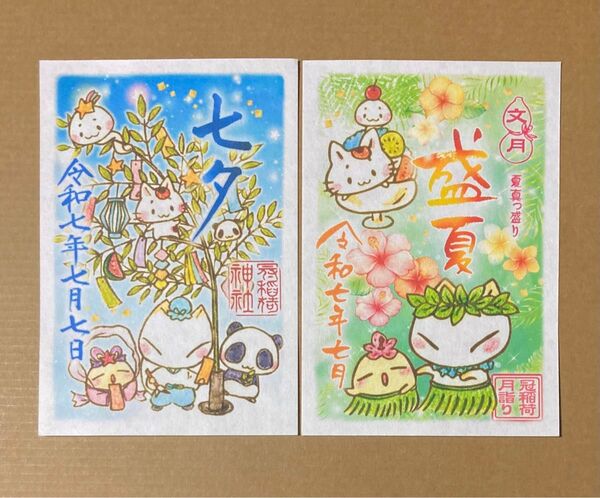 七夕
令和七年七月七日
冠稲荷
神社
文
月
盛夏
夏真っ盛り
令和七年七月
冠稲荷
月詣り